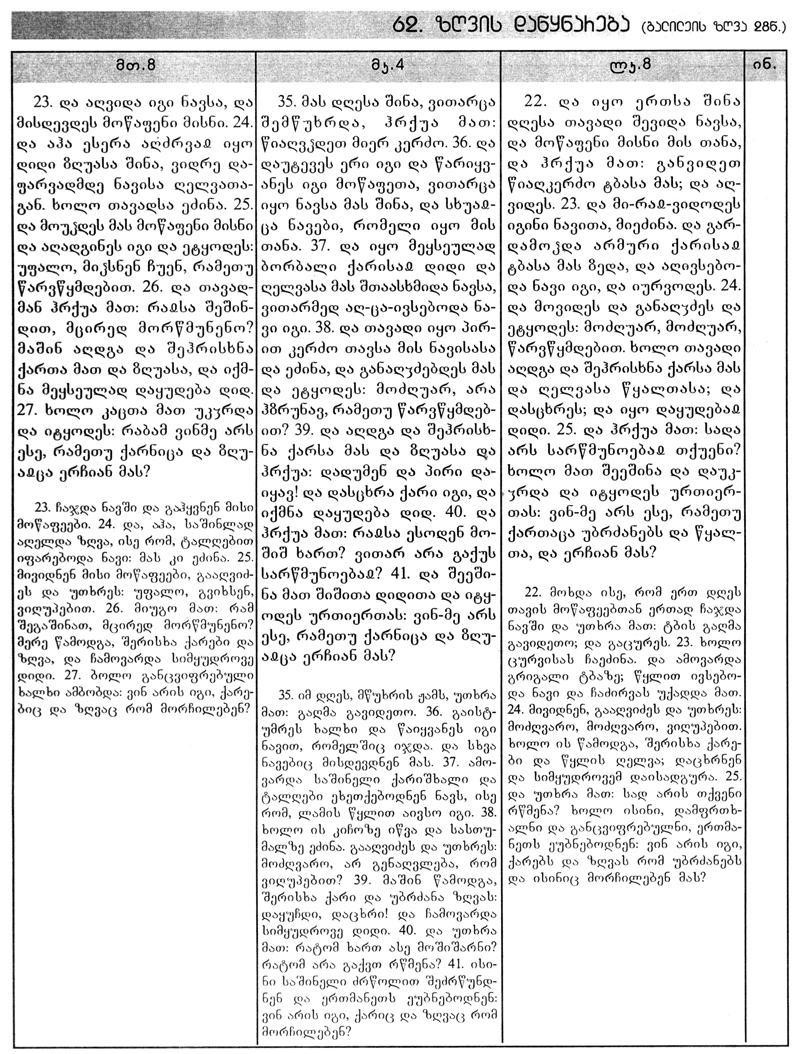 62. ზღვის დაწყნარება (გალილეის ზღვა 28წ.)
მთ.8
23. და აღვიდა იგი ნავსა, და
მისდევდეს მოწაფენი მისნი. 24.
და აჰა ესერა აღძრვაჲ იყო
დიდი ზღუასა შინა, ვიდრე და-
ფარვადმდე ნავისა ღელვათა-
გან. ხოლო თავადსა ეძინა. 25.
და მოუკდეს მას მოწაფენი მისნი
და აღადგინეს იგი და ეტყოდეს:
უფალო, მიჴსნენ ჩუენ, რამეთუ
წარვწყმდებით. 26. და თავად-
მან ჰრქუა მათ: რაჲსა შეშინ-
დით, მცირედ მორწმუნენო?
მაშინ აღდგა და შეჰრისხნა
ქართა მათ და ზღუასა, და იქმ-
ნა მეყსეულად დაყუდება დიდ.
27. ხოლო კაცთა მათ უკჳრდა
და იტყოდეს: რაბამ ვინმე არს
ესე, რამეთუ ქარნიცა და ზღუ-
აჲცა ერჩიან მას?
23. ჩაჯდა ნავში და გაჰყვნენ მისი
მოწაფეები. 24. და, აჰა, საშინლად
აღელდა ზღვა, ისე რომ, ტალღებით
იფარებოდა ნავი: მას კი ეძინა. 25.
მივიდნენ მისი მოწაფეები, გააღვიძ-
ეს და უთხრეს: უფალო, გვიხსენ,
ვიღუპებით. 26. მიუგო მათ: რამ
შეგაშინათ, მცირედ მორწმუნენო?
მერე წამოდგა, შერისხა ქარები და
ზღვა, და ჩამოვარდა სიმყუდროვე
დიდი. 27. ბოლო განცვიფრებული
ხალხი ამბობდა: ვინ არის იგი, ქარე-
ბიც და ზღვაც რომ მორჩილებენ?
მკ.4
35. მას დღესა შინა, ვითარცა
შემწუხრდა, ჰრქუა მათ:
წიაღვჴდეთ მიერ კერძო. 36. და
დაუტევეს ერი იგი და წარიყვ-
ანეს იგი მოწაფეთა, ვითარცა
იყო ნავსა მას შინა, და სხუაჲ-
ცა ნავები, რომელი იყო მის
თანა. 37. და იყო მეყსეულად
ბორბალი ქარისაჲ დიდი და
ღელვასა მას შთაასხმიდა ნავსა,
ვითარმედ აღ-ცა-ივსებოდა ნა-
ვი იგი. 38. და თავადი იყო პირ-
ით კერძო თავსა მის ნავისასა
და ეძინა, და განაღჳძებდეს მას
და ეტყოდეს: მოძღუარ, არა
ჰზრუნავ, რამეთუ წარვწყმდებ-
ით? 39. და აღდგა და შეჰრისხ-
ნა ქარსა მას და ზღუასა და
ჰრქუა: დადუმენ და პირი და-
იყავ! და დასცხრა ქარი იგი, და
იქმნა დაყუდება დიდ. 40. და
ჰრქუა მათ: რაჲსა ესოდენ მო-
შიშ ხართ? ვითარ არა გაქუს
სარწმუნოებაჲ? 41. და შეეში-
ნა მათ შიშითა დიდითა და იტყ-
ოდეს ურთიერთას: ვინ-მე არს
ესე, რამეთუ ქარნიცა და ზღუ-
აჲცა ერჩიან მას?
35. იმ დღეს, მწუხრის ჟამს, უთხრა
მათ: გაღმა გავიდეთო. 36. გაისტ-
უმრეს ხალხი და წაიყვანეს იგი
ნავით, რომელშიც იჯდა. და სხვა
ნავებიც მისდევდნენ მას. 37. ამო-
ვარდა საშინელი ქარიშხალი და
ტალღები ეხეთქებოდნენ ნავს, ისე
რომ, ლამის წყლით აივსო იგი. 38.
ხოლო ის კიჩოზე იწვა და სასთუ-
მალზე ეძინა. გააღვიძეს და უთხრეს:
მოძღვარო, არ გენაღვლება, რომ
ვიღუპებით? 39. მაშინ წამოდგა,
შერისხა ქარი და უბრძანა ზღვას:
დაყუჩდი, დაცხრი! და ჩამოვარდა
სიმყუდროვე დიდი. 40. და უთხრა
მათ: რატომ ხართ ასე მოშიშარნი?
რატომ არა გაქვთ რწმენა? 41. ისი-
ნი საშინელი ძრწოლით შეძრწუნდ-
ნენ და ერთმანეთს ეუბნებოდნენ:
ვინ არის იგი, ქარიც და ზღვაც რომ
მორჩილებენ?
ლკ.8
22. და იყო ერთსა შინა
დღესა თავადი შევიდა ნავსა,
და მოწაფენი მისნი მის თანა,
და ჰრქუა მათ: განვიდეთ
წიაღკერძო ტბასა მას; და აღ-
ვიდეს. 23. და მი-რაჲ-ვიდოდეს
იგინი ნავითა, მიეძინა. და გარ-
დამოკდა არმური ქარისაჲ
ტბასა მას ზედა, და აღივსებო-
და ნავი იგი, და იურვოდეს. 24.
და მოვიდეს და განაღჳძეს და
ეტყოდეს: მოძღუარ, მოძღუარ,
წარვწყმდებით. ხოლო თავადი
აღდგა და შეჰრისხნა ქარსა მას
და ღელვასა წყალთასა; და
დასცხრეს; და იყო დაყუდებაჲ
დიდი. 25. და ჰრქუა მათ: სადა
არს სარწმუნოებაჲ თქუენი?
ხოლო მათ შეეშინა და დაუკ-
ჳრდა და იტყოდეს ურთიერ-
თას: ვინ-მე არს ესე, რამეთუ
ქართაცა უბრძანებს და წყალ-
თა, და ერჩიან მას?
22. მოხდა ისე, რომ ერთ დღეს
თავის მოწაფეებთან ერთად ჩაჯდა
ნავში და უთხრა მათ: ტბის გაღმა
გავიდეთო; და გაცურეს. 23. ხოლო
ცურვისას ჩაეძინა. და ამოვარდა
გრიგალი ტბაზე; წყლით ივსებო-
და ნავი და ჩაძირვას უქადდა მათ.
24. მივიდნენ, გააღვიძეს და უთხრეს:
მოძღვარო, მოძღვარო, ვიღუპებით.
ხოლო ის წამოდგა, შერისხა ქარე-
ბი და წყლის ღელვა; დაცხრნენ
და სიმყუდროვემ დაისადგურა. 25.
და უთხრა მათ: სად არის თქვენი
რწმენა? ხოლო ისინი, დამფრთხ-
ალნი და განცვიფრებულნი, ერთმა-
ნეთს ეუბნებოდნენ: ვინ არის იგი,
ქარებს და ზღვას რომ უბრძანებს
და ისინიც მორჩილებენ მას?
ინ.